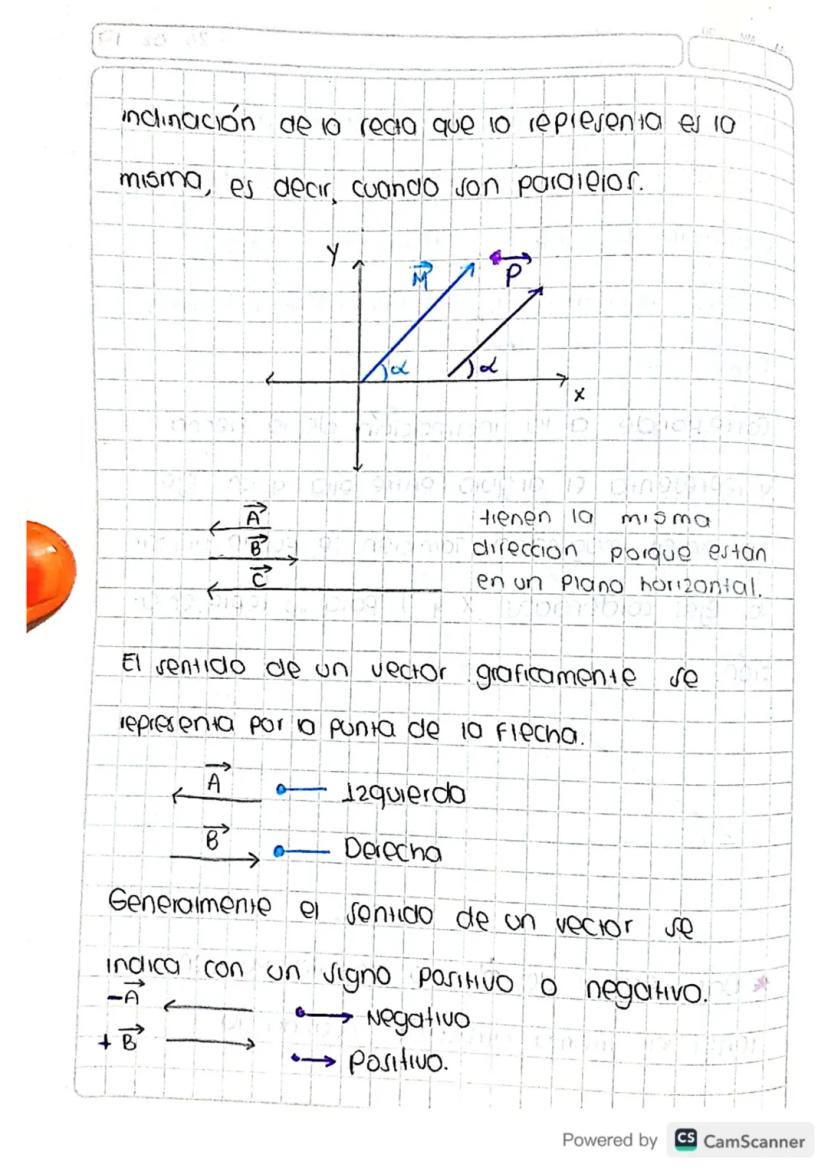 inclinación de la recta que lo representa es la
misma, es decir, cuando son paralelos.
Y
M
P
α
α
x
A
B
C
tienen la misma
direccion porque estan
en un plano horizontal.
El sentido de un vector graficamente se
representa por la punta de la flecha.
A
Izquierda
B
Derecha
Generalmente el sentido de un vector se
indica con un signo positivo o negativo.
-A
Negativo
+B
Positivo.
Powered by CS CamScanner